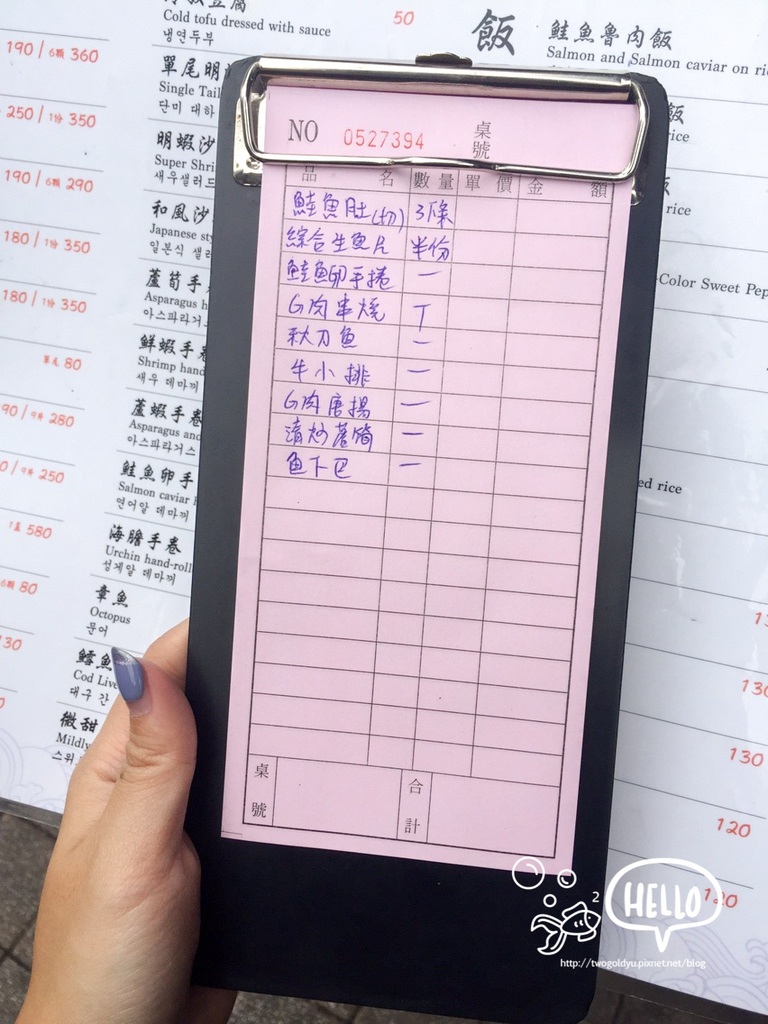 50
Cold tofu dressed with sauce
냉연두부
190 / 6顆 360
單尾明
Single Tail
단미 대하
250 / 1份 350
明蝦沙
Super Shri
새우샐러드
190 / 6顆 290
和風沙
Japanese sty
일본식 샐러
180 / 1份 350
蘆筍手
Asparagus h
아스파라거스
180 / 1份 350
鮮蝦手卷
Shrimp hand
새우 데마끼
單尾 80
蘆蝦手卷
Asparagus and
아스파라거스
90 / 9片 280
鮭魚卵手
Salmon caviar h
연어알 데마끼
0 / 9片 250
海膽手卷
Urchin hand-roll
성게알 데마끼
580
章魚
Octopus
문어
6顆 80
鱈魚
Cod Live
대구 간
130
微甜
Mildly
스위
飯
鮭魚魯肉飯
Salmon and Salmon caviar on ri
飯
rice
rice
Color Sweet Pep
ed rice
13
130
130
120
120
NO 0527394 桌號
品名 數量 單價 金額
鮭魚肚(切) 3條
綜合生魚片 半份
鮭魚卵手捲 一
G肉串燒 T
秋刀魚 一
牛小排 一
G肉唐揚 一
清炒蘆筍 一
魚下巴 一
桌號 合計
2
HELLO
http://twogoldyu.pixnet.net/blog